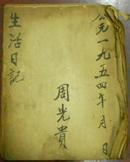 公元一九五四年 月 日
生活日記
周光貴